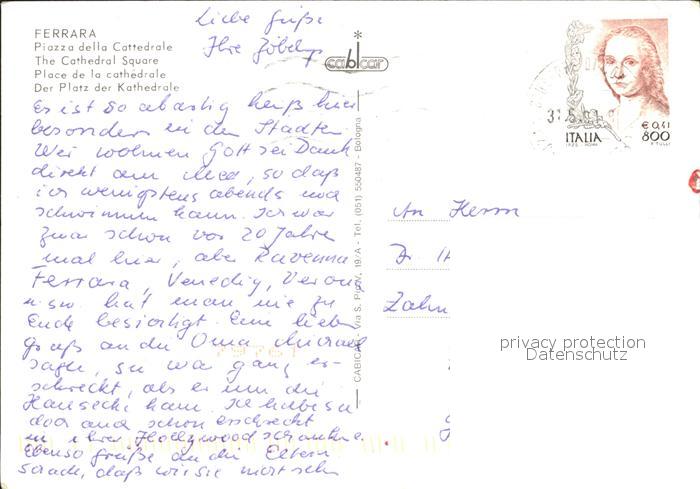 FERRARA
Piazza della Cattedrale
The Cathedral Square
Place de la cathédrale
Der Platz der Kathedrale
Liebe Grüße
Ihre
cabicar
Es ist so heiß hier
besonders in den Städten
Wir wohnen Gott sei Dank
direkt am Meer, so daß
ich wenigstens abends
schwimmen kann. Ich war
zwar schon vor 20 Jahren
mal hier, aber Ravenna
Ferrara, Venedig, Verona
usw. hat man nie zu
Ende besichtigt. Einen lieben
Gruß an die Oma. Michael
sagte, sie war ganz er-
schreckt, als er um die
Hausecke kam. Ich habe sie
dort auch schon erschreckt
in ihrer Hollywoodschaukel.
Ebenso Grüße an die Eltern
schade, daß wir sie nicht sehen
CABICAR - Via S. Pio V, 19/A - Tel. (051) 550487 - Bologna
€ 0,41
800
ITALIA
An Herrn
Dr. H
Zahn
privacy protection
Datenschutz